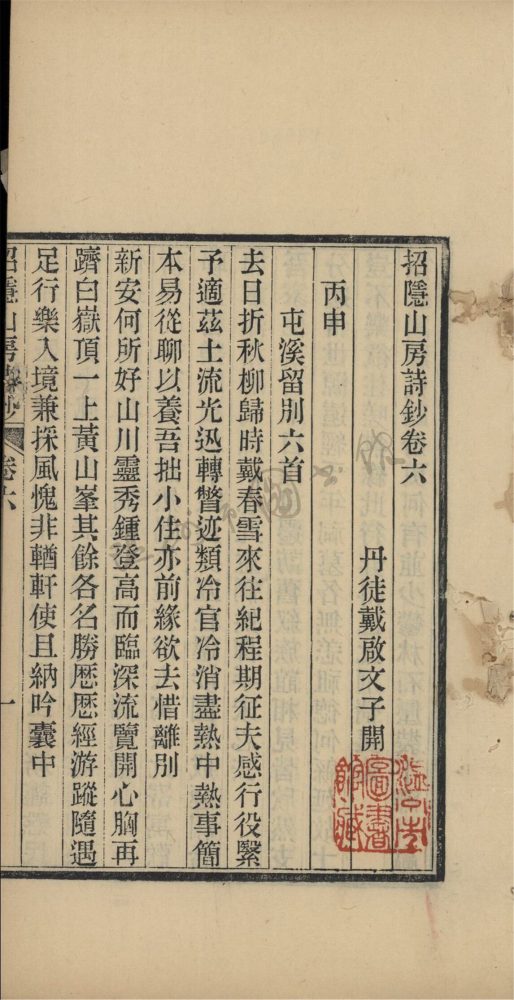 招隱山房詩鈔卷六
丹徒戴啟文子開
丙申
屯溪留別六首
去日折秋柳歸時戴春雪來往紀程期征夫感行役緊
予適茲土流光迅轉瞥迹類冷官冷消盡熱中熱事簡
本易從聊以養吾拙小住亦前緣欲去惜離別
新安何所好山川靈秀鍾登高而臨深流覽開心胸再
躋白嶽頂一上黃山峯其餘各名勝歷歷經游蹤隨遇
足行樂入境兼採風愧非輶軒使且納吟囊中
招隱山房詩鈔
卷六
一
圖書
館藏